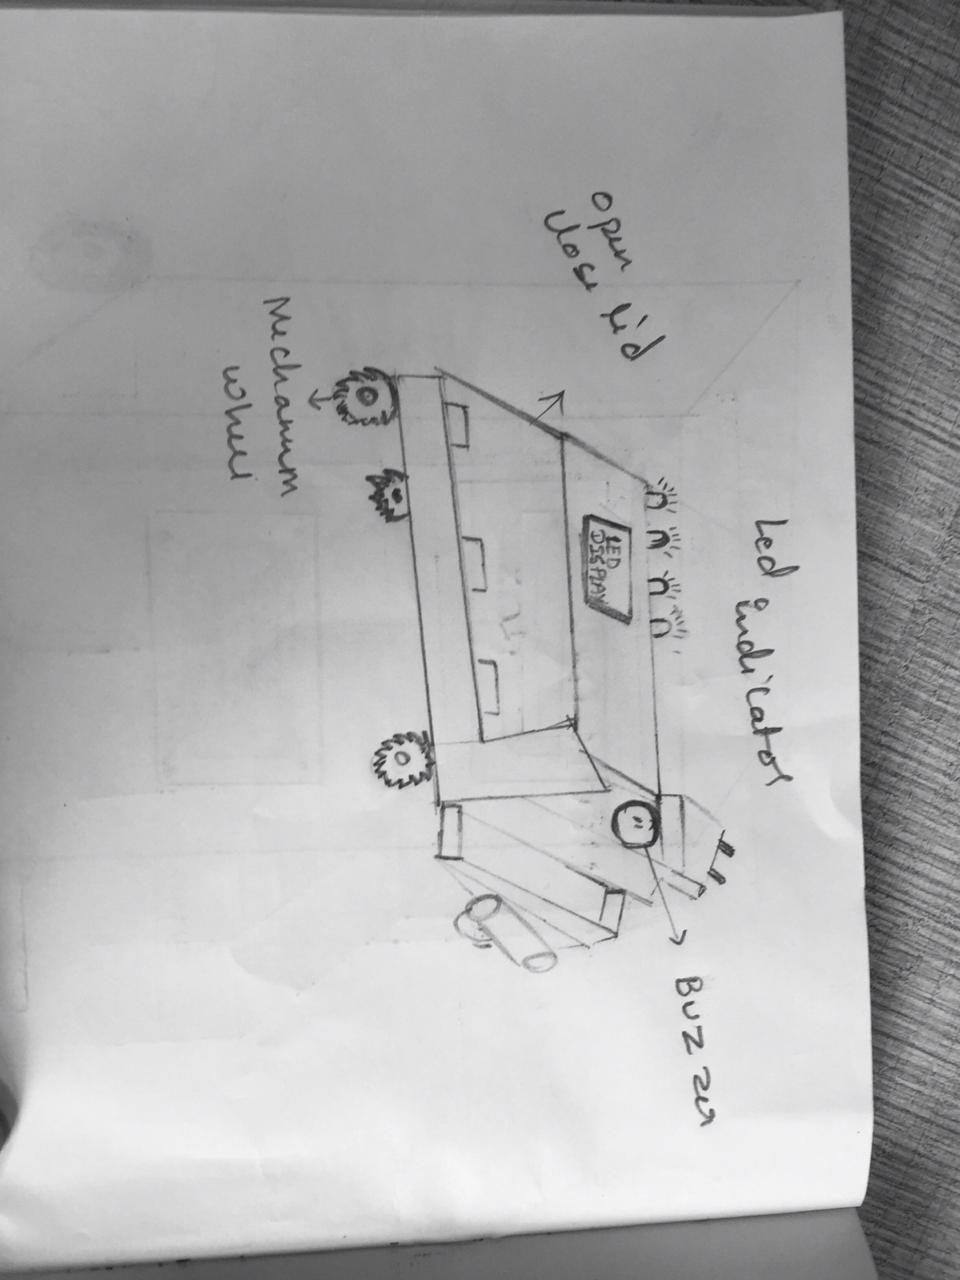 Led indicator
BUZZER
open
close lid
LED
DISPLAY
Mechanum
wheel